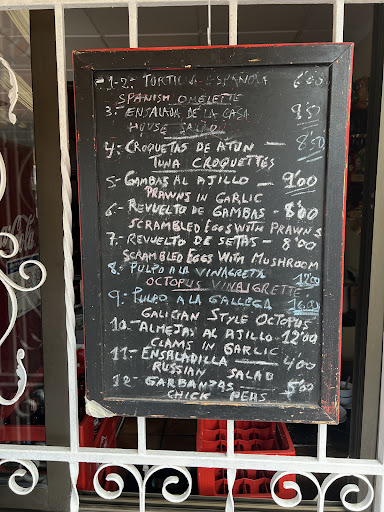 -1-2- TORTILLA ESPAÑOLA
SPANISH OMELETTE
3- ENSALADA DE LA CASA 8'50
HOUSE SALAD
4- CROQUETAS DE ATUN - 8'50
TUNA CROQUETTES
5- GAMBAS AL AJILLO - 9'00
PRAWNS IN GARLIC
6- REVUELTO DE GAMBAS - 8'00
SCRAMBLED EGGS WITH PRAWNS
7- REVUELTO DE SETAS - 8'00
SCRAMBLED EGGS WITH MUSHROOM
8- PULPO A LA VINAGRETA 12'00
OCTOPUS VINAIGRETTE
9- PULPO A LA GALLEGA 16'00
GALICIAN STYLE OCTOPUS
10- ALMEJAS AL AJILLO - 12'00
CLAMS IN GARLIC
11- ENSALADILLA - 4'00
RUSSIAN SALAD
12- GARBANZAS - 5'00
CHICK PEAS